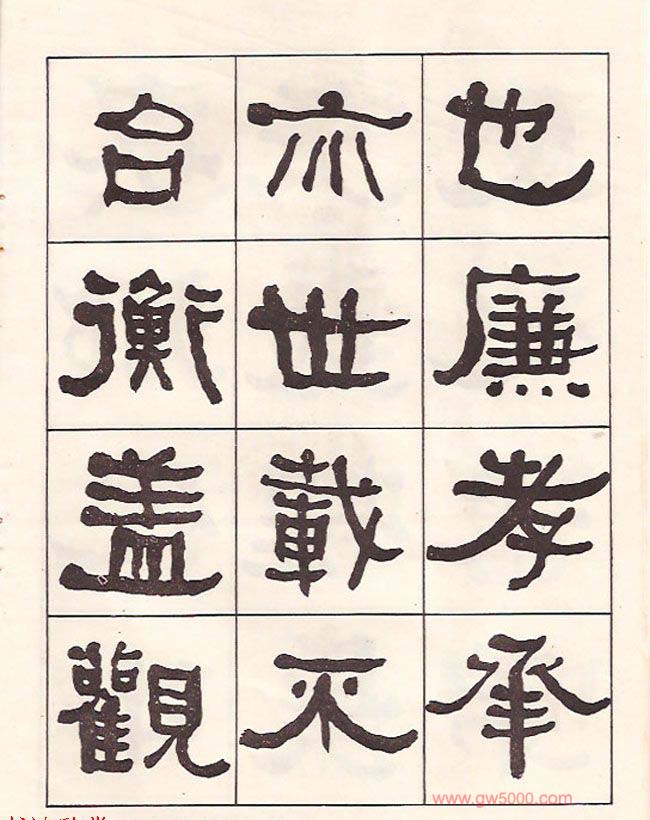 也廉孝承
亦世載
台衡盖觀
www.gw5000.com